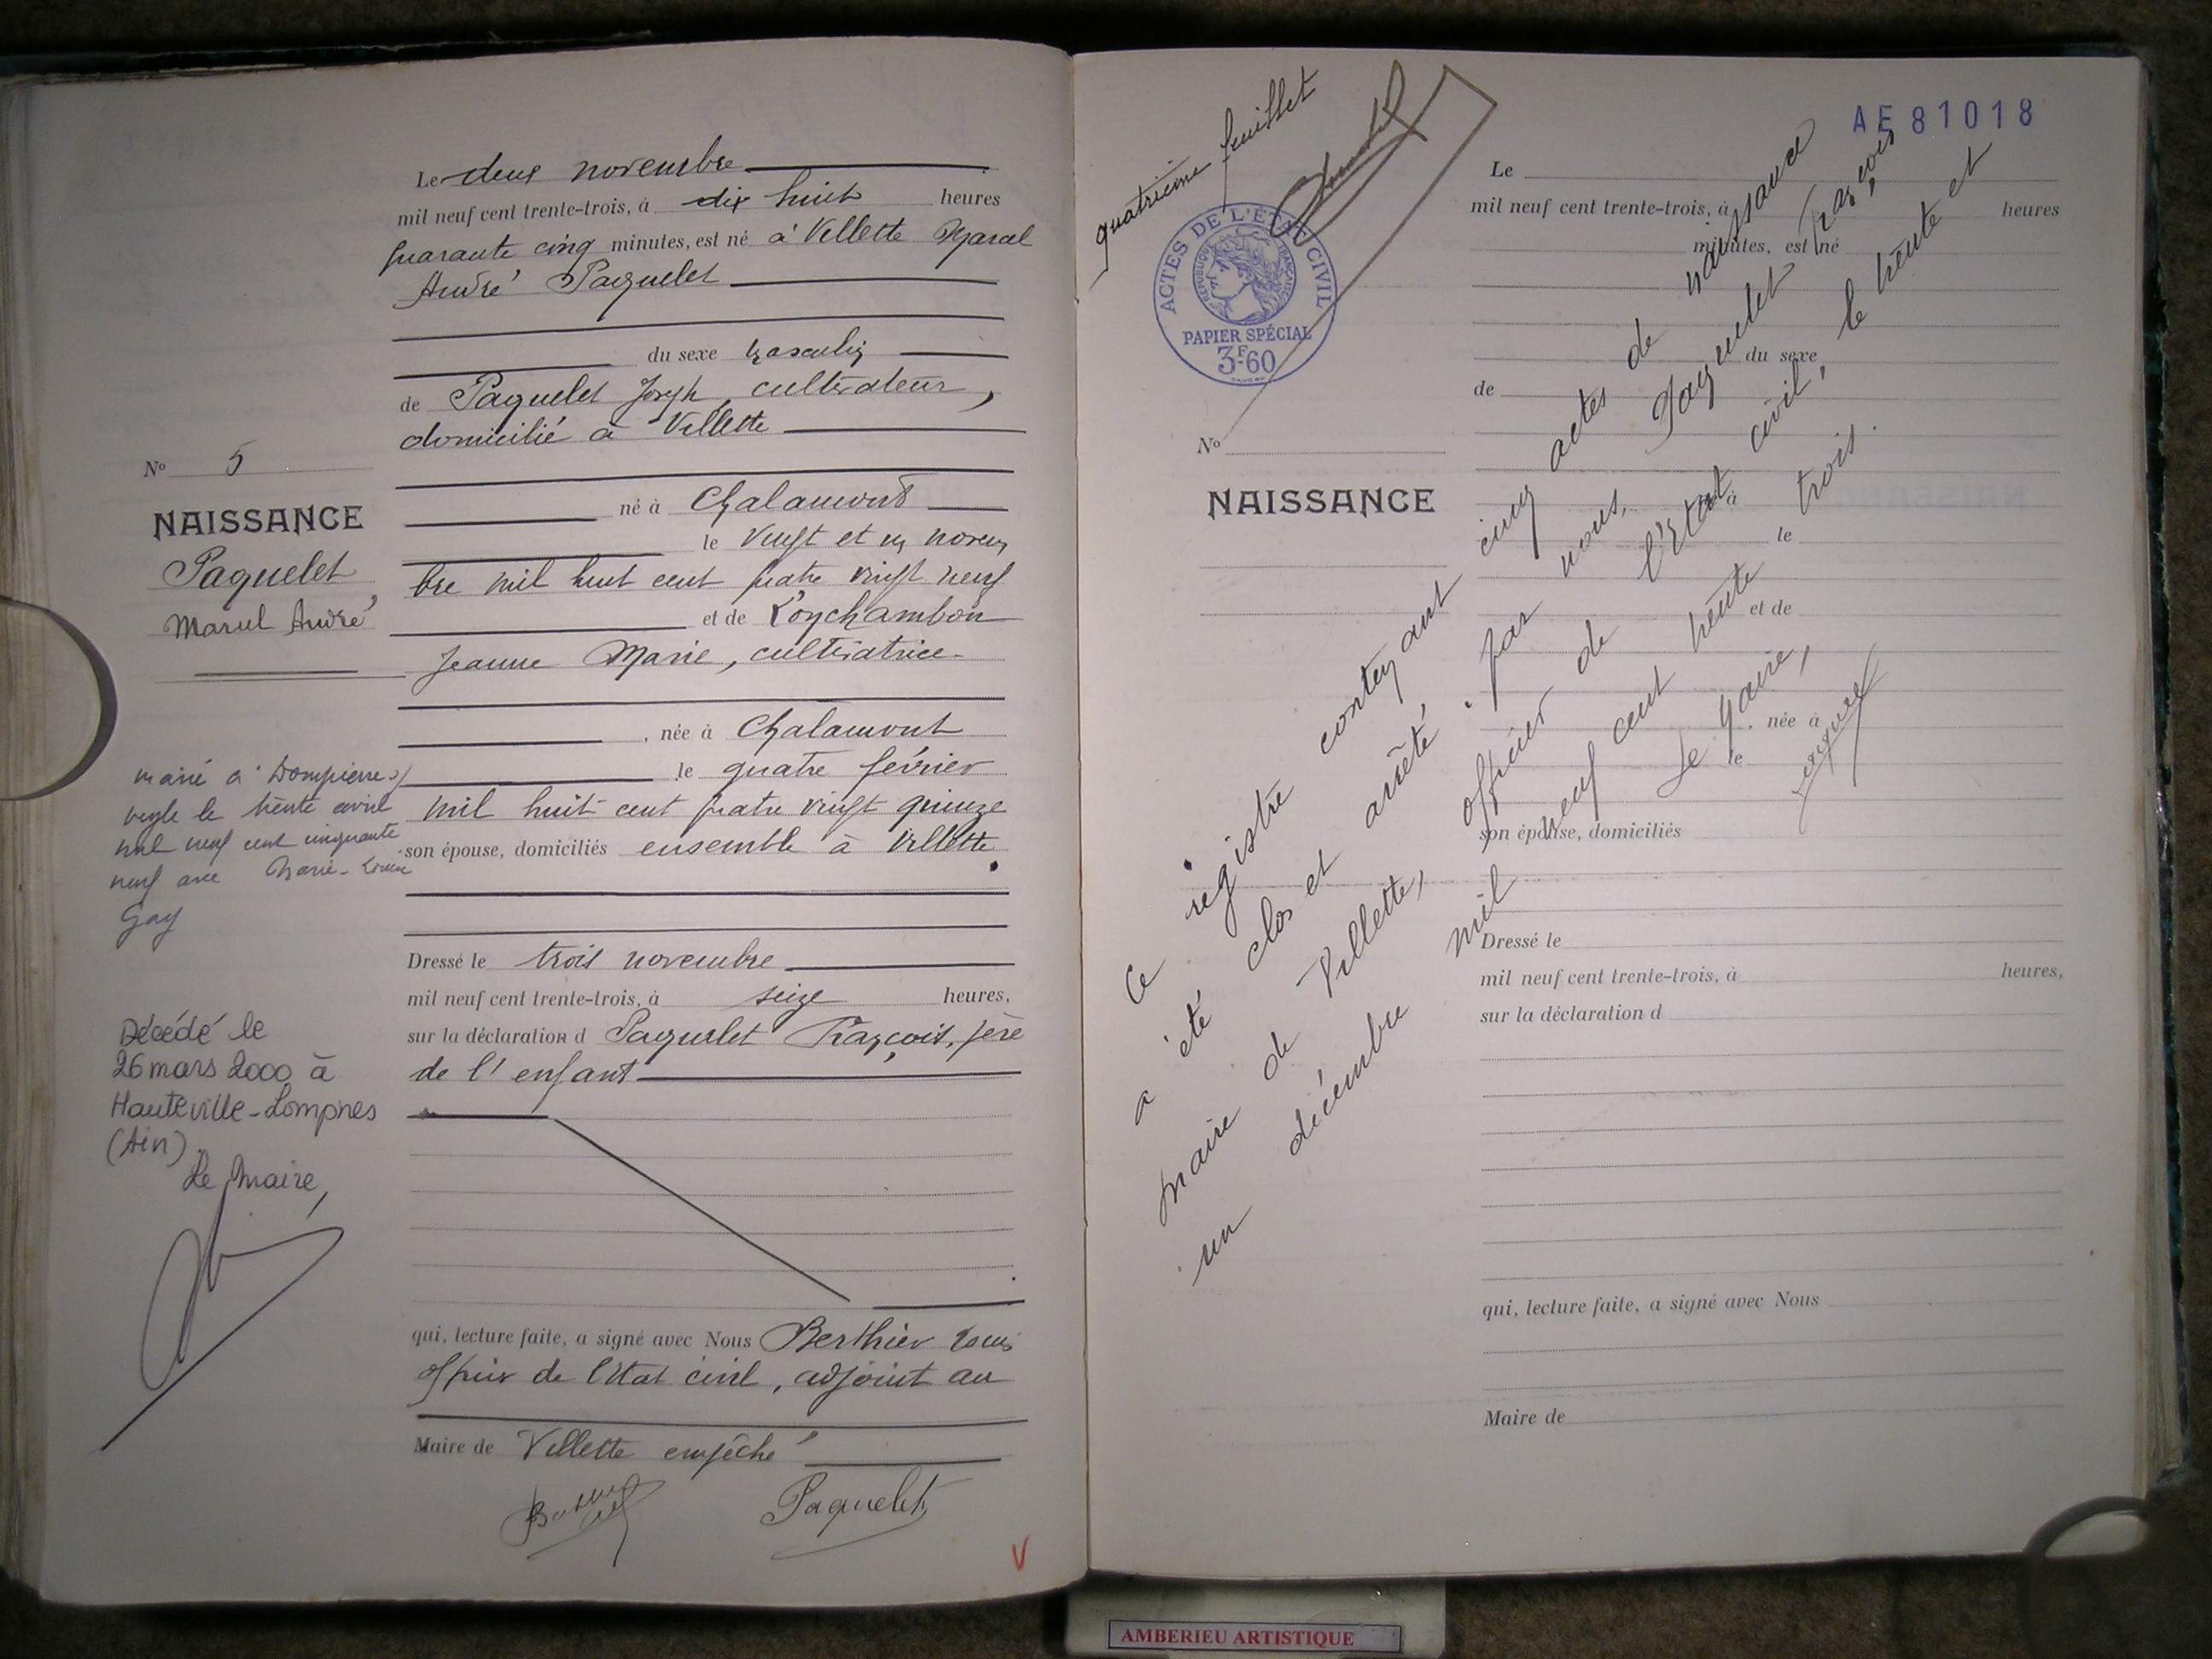 Le deux novembre
mil neuf cent trente-trois, à dix huit heures
quarante cinq minutes, est né à Villette Marcel
André Paquelet
du sexe masculin
de Paquelet Joseph, cultivateur,
domicilié à Villette
né à Chalamont
le vingt et un novem
bre mil huit cent quatre vingt neuf
et de Ronchambon
Jeanne Marie, cultivatrice
, née à Chalamont
le quatre février
mil huit cent quatre vingt quinze
son épouse, domiciliés ensemble à Villette
Dressé le trois novembre
mil neuf cent trente-trois, à seize heures,
sur la déclaration d Paquelet François, père
de l'enfant
qui, lecture faite, a signé avec Nous Berthier Louis
officier de l'Etat civil, adjoint au
Maire de Villette empêché
Paquelet
V
No 5
NAISSANCE
Paquelet,
Marcel André
marié à Dompierre s/
veyle le trente avril
mil neuf cent cinquante
neuf avec Marie-Louise
Gay
Décédé le
26 mars 2000 à
Hauteville-Lompnes
(Ain)
Le Maire,
quatrième feuillet
AE 81018
ACTES DE L'ÉTAT CIVIL
RÉPUBLIQUE FRANÇAISE
PAPIER SPÉCIAL
3F60
No
NAISSANCE
Le
mil neuf cent trente-trois, à heures
minutes, est né
du sexe
de
à
le
et de
, née à
le
son épouse, domiciliés
Dressé le
mil neuf cent trente-trois, à heures,
sur la déclaration d
qui, lecture faite, a signé avec Nous
Maire de
Ce registre contenant cinq actes de naissance
a été clos et arrêté par nous, Paquelet François,
maire de Villette, officier de l'Etat civil, le trente et
un décembre mil neuf cent trente trois.
Le Maire,
AMBERIEU ARTISTIQUE